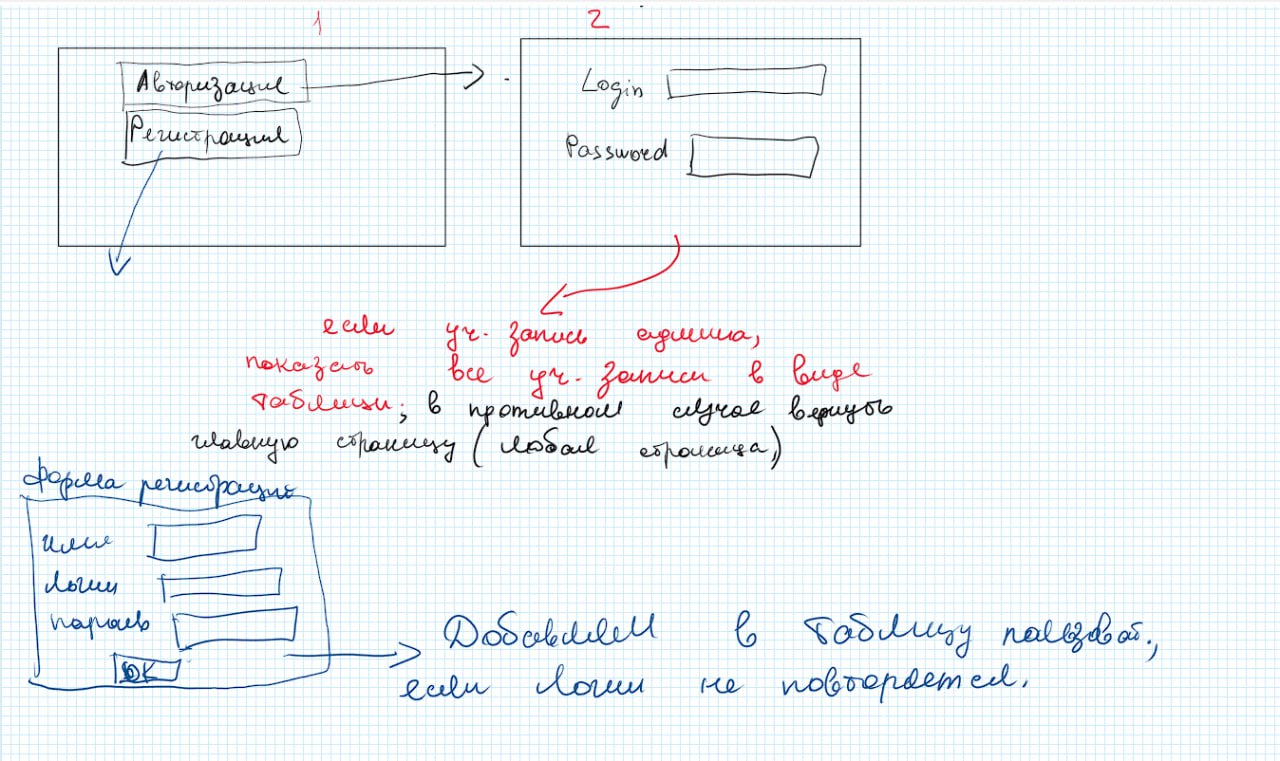 1
2
Авторизация
Регистрация
Login
Password
если уч. запись админа,
показать все уч. записи в виде
таблицы; в противном случае вернуть
главную страницу (любая страница)
форма регистрации
имя
логин
пароль
OK
Добавляем в таблицу пользоват.,
если логин не повторяется.